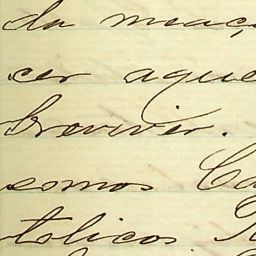 da meaç
cer aque
brovivir.
somos Ca
tolicos